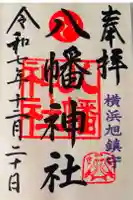 奉拝
横浜旭鎮守
八幡神社
令和七年十二月二十日